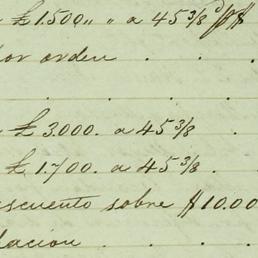 £1.500,, ,, a 45 3/8 d p$
por orden . . .
£3.000. a 45 3/8 .
£1.700. a 45 3/8 .
escuento sobre $10.00
lacion . . . .